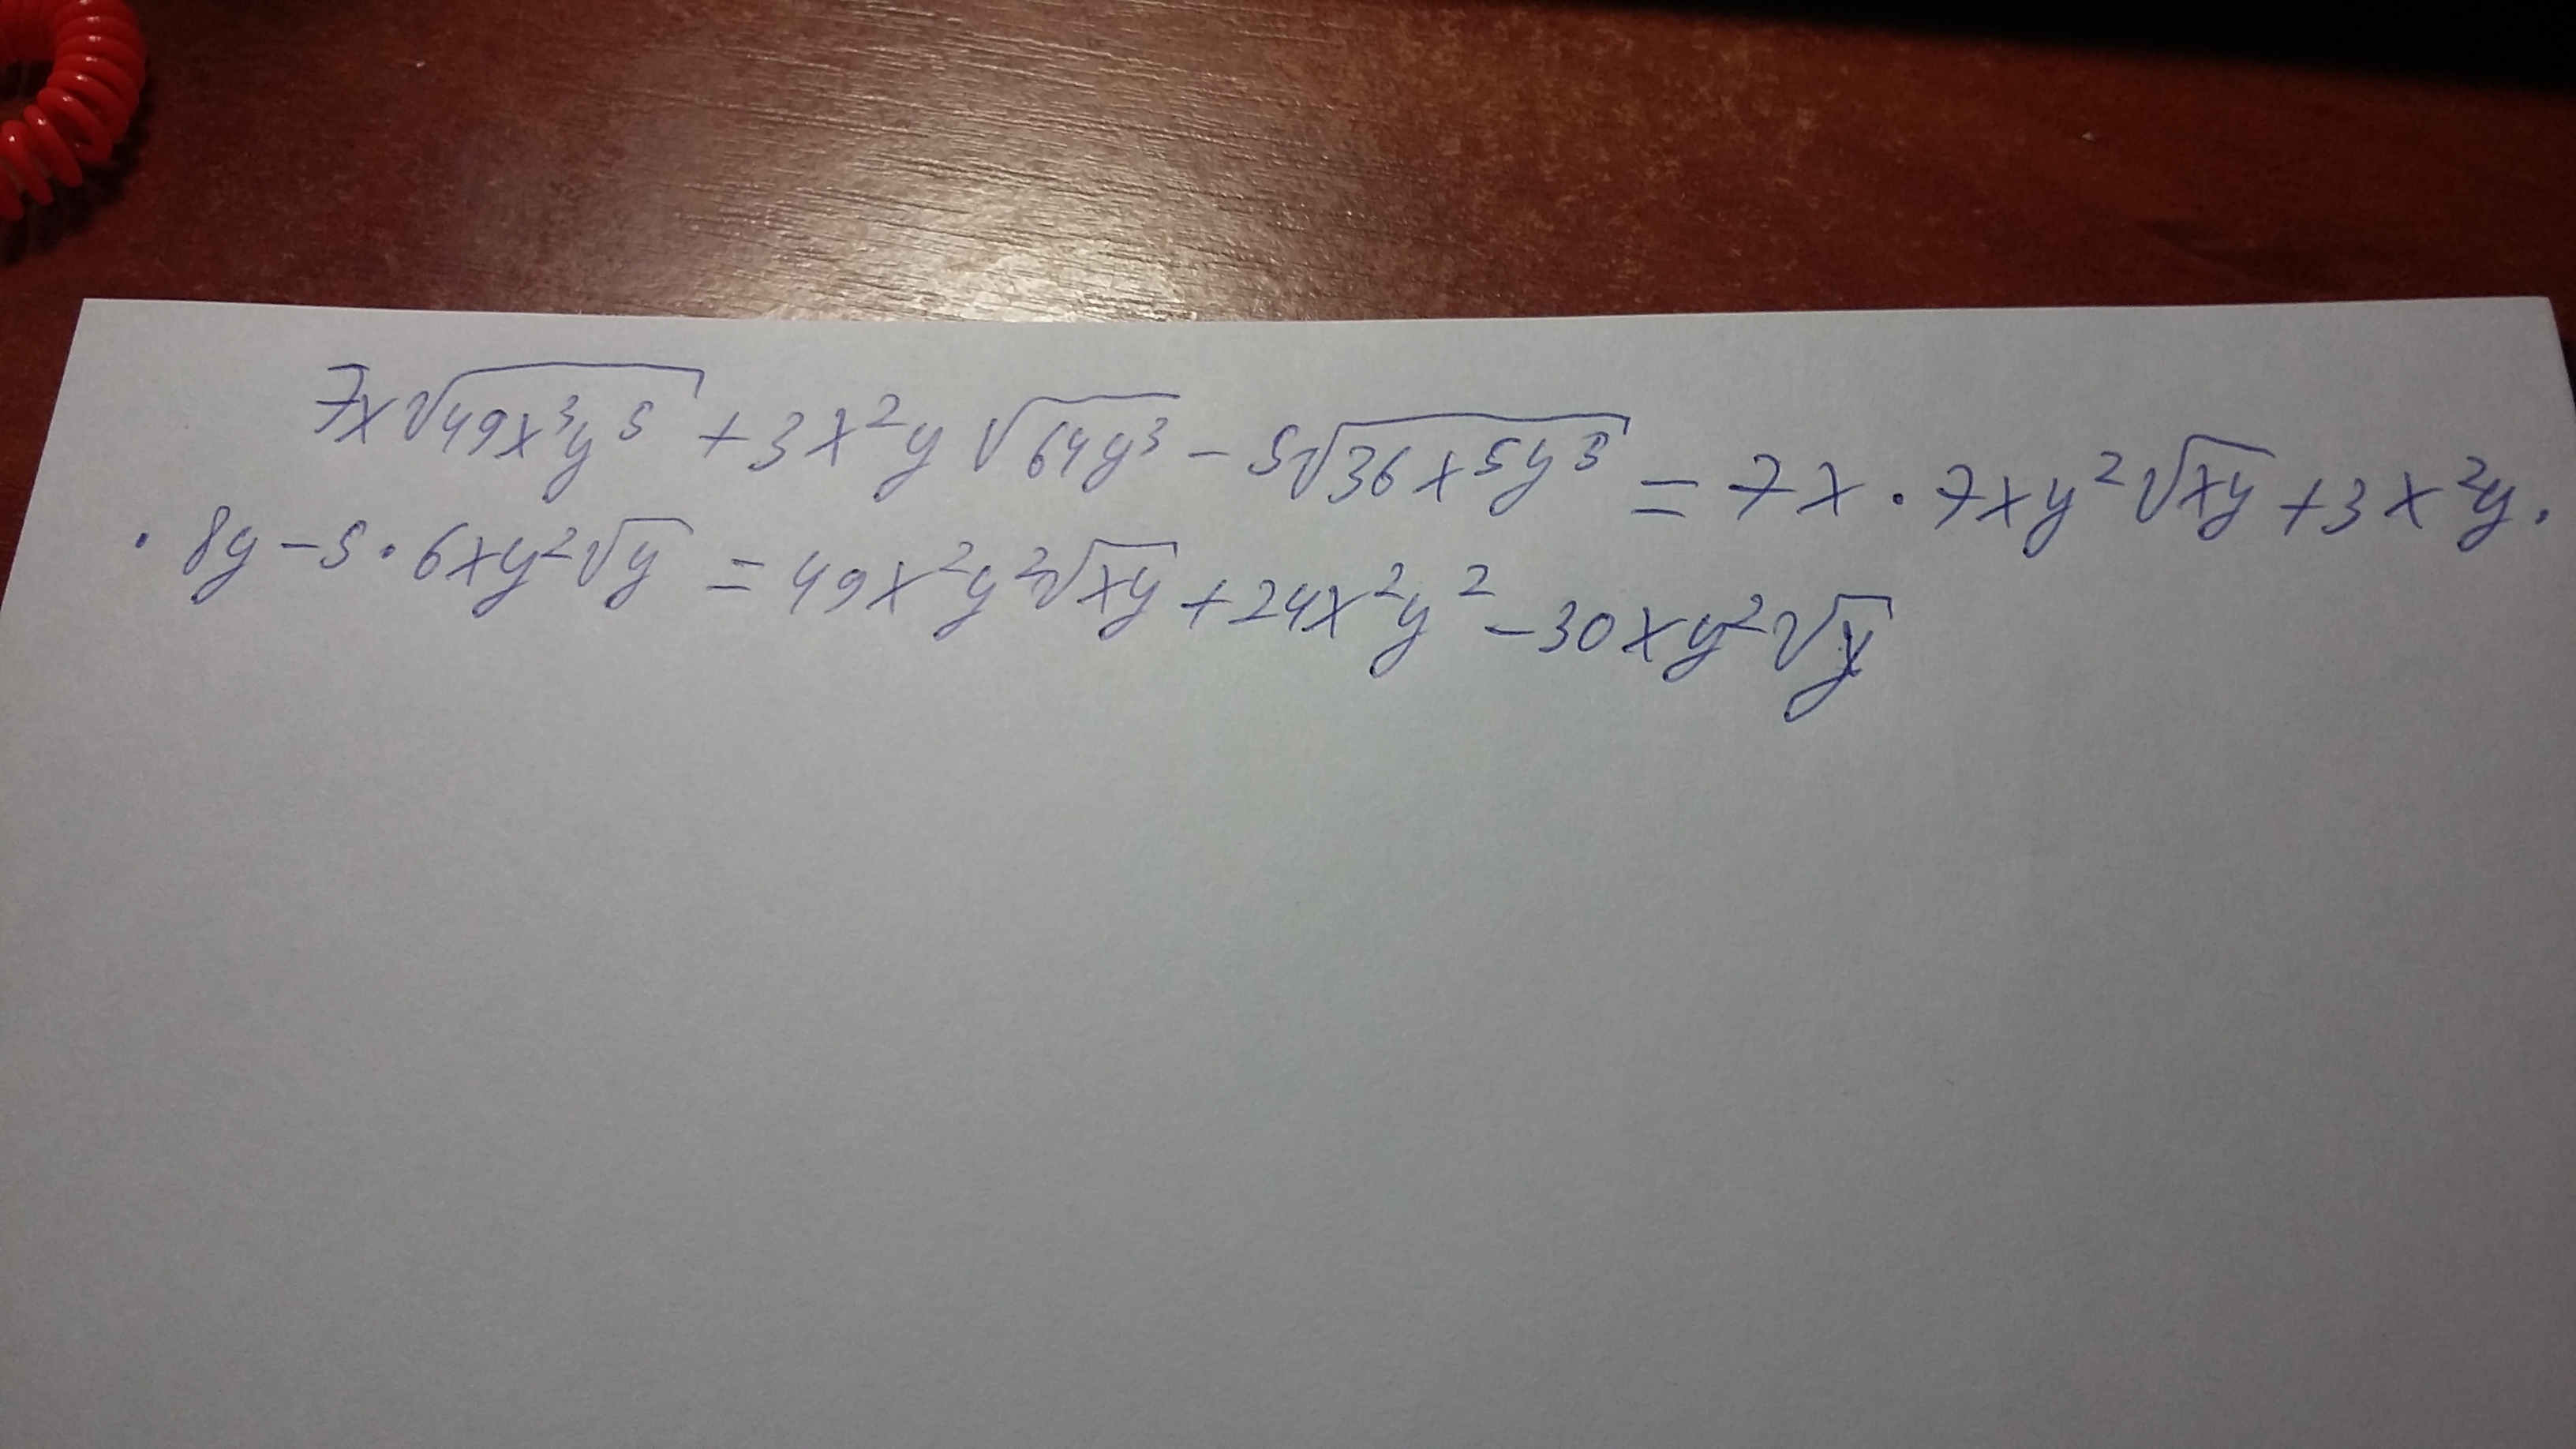 7x√49x³y⁵ + 3x²y √64y³ - 5√36x⁵y⁵ = 7x · 7xy²√xy + 3x²y ·
· 8y - 5 · 6xy²√y = 49x²y²√xy + 24x²y² - 30xy²√y